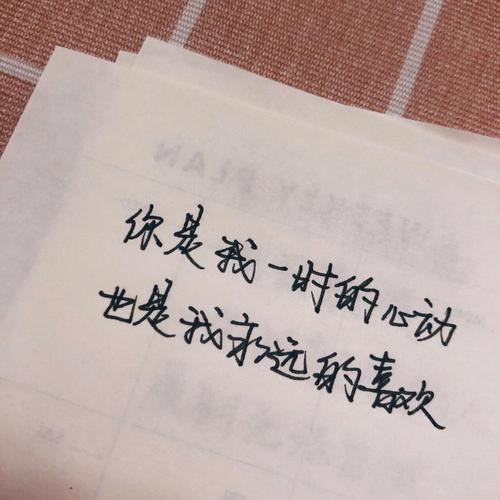 WEEKLY PLAN
你是我一时的心动
也是我永远的喜欢